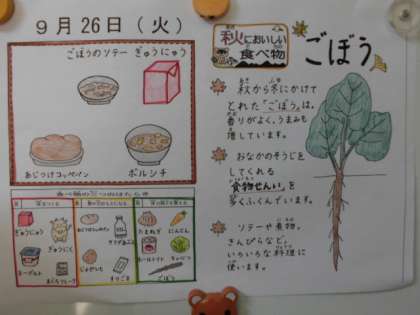 9月26日（火）
ごぼうのソテー ぎゅうにゅう
あじつけコッペパン
ボルシチ
ぎゅうにゅう
ぎゅうにく
ヨーグルト
じゃがいも
たまねぎ
にんじん
ホールトマト
キャベツ
ごぼう
秋においしい
食べ物
ごぼう
秋から冬にかけて
とれた「ごぼう」は、
香りがよく、うまみも
増しています。
おなかのそうじを
してくれる
食物せんいを
多くふくんでいます。
ソテーや煮物、
きんぴらなど、
いろいろな料理に
使います。